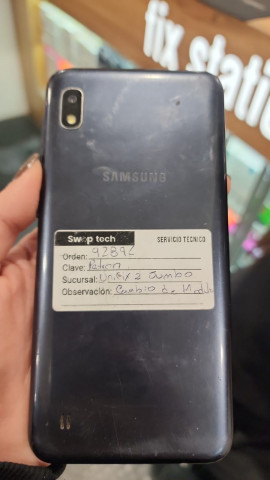 fix stati
SAMSUNG
Swap tech SERVICIO TECNICO
Orden: 92892
Clave: Patron
Sucursal: Unifix 2 Jumbo
Observación: Cambio de Modulo